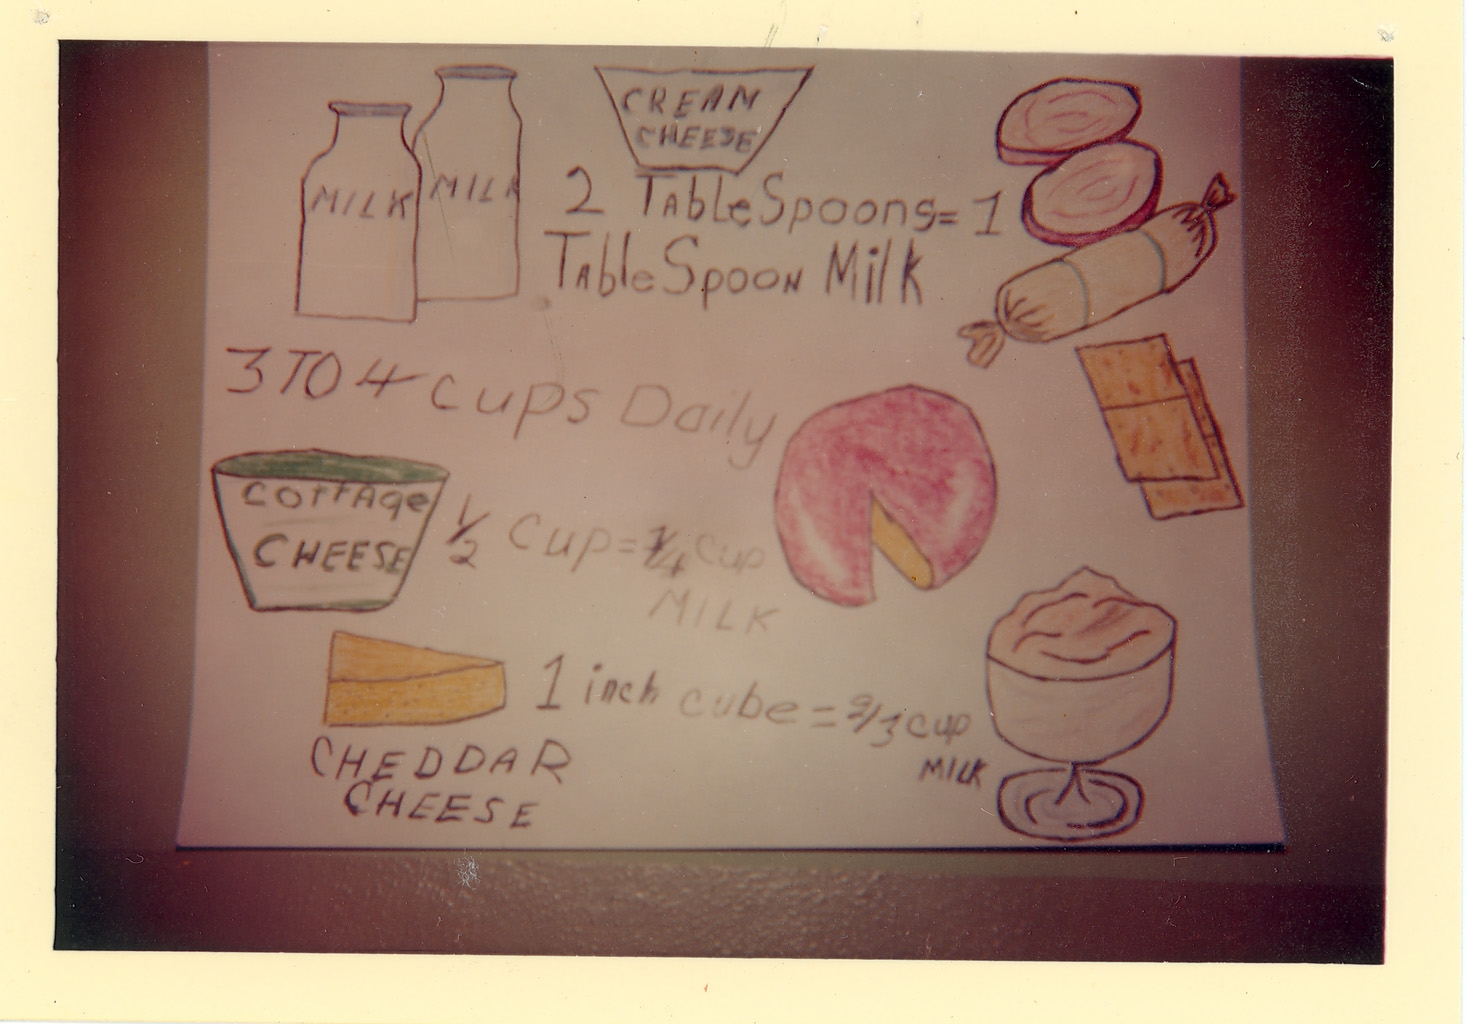 MILK
MILK
CREAM
CHEESE
2 TableSpoons = 1
TableSpoon Milk
3 TO 4 cups Daily
COTTAGE
CHEESE
1/2 cup = 1/4 cup
MILK
1 inch cube = 2/3 cup
MILK
CHEDDAR
CHEESE